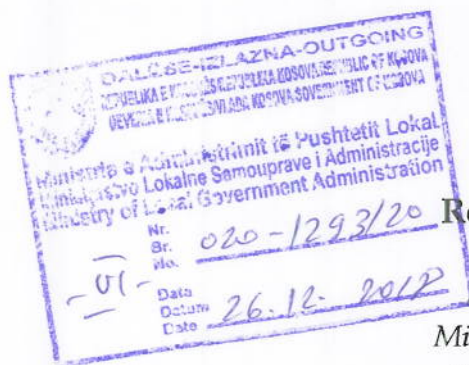 DALËSE-IZLAZNA-OUTGOING
REPUBLIKA E KOSOVËS REPUBLIKA KOSOVA REPUBLIC OF KOSOVA
KOSOVA GOVERNMENT OF KOSOVA
Ministria e Administrimit të Pushtetit Lokal
Ministrstvo Lokalne Samouprave i Administracije
Ministry of Local Government Administration
Nr.
Br. 020-1293/20
No.
-VI-
Data
Datum 26.12.
Date
Re
Mi